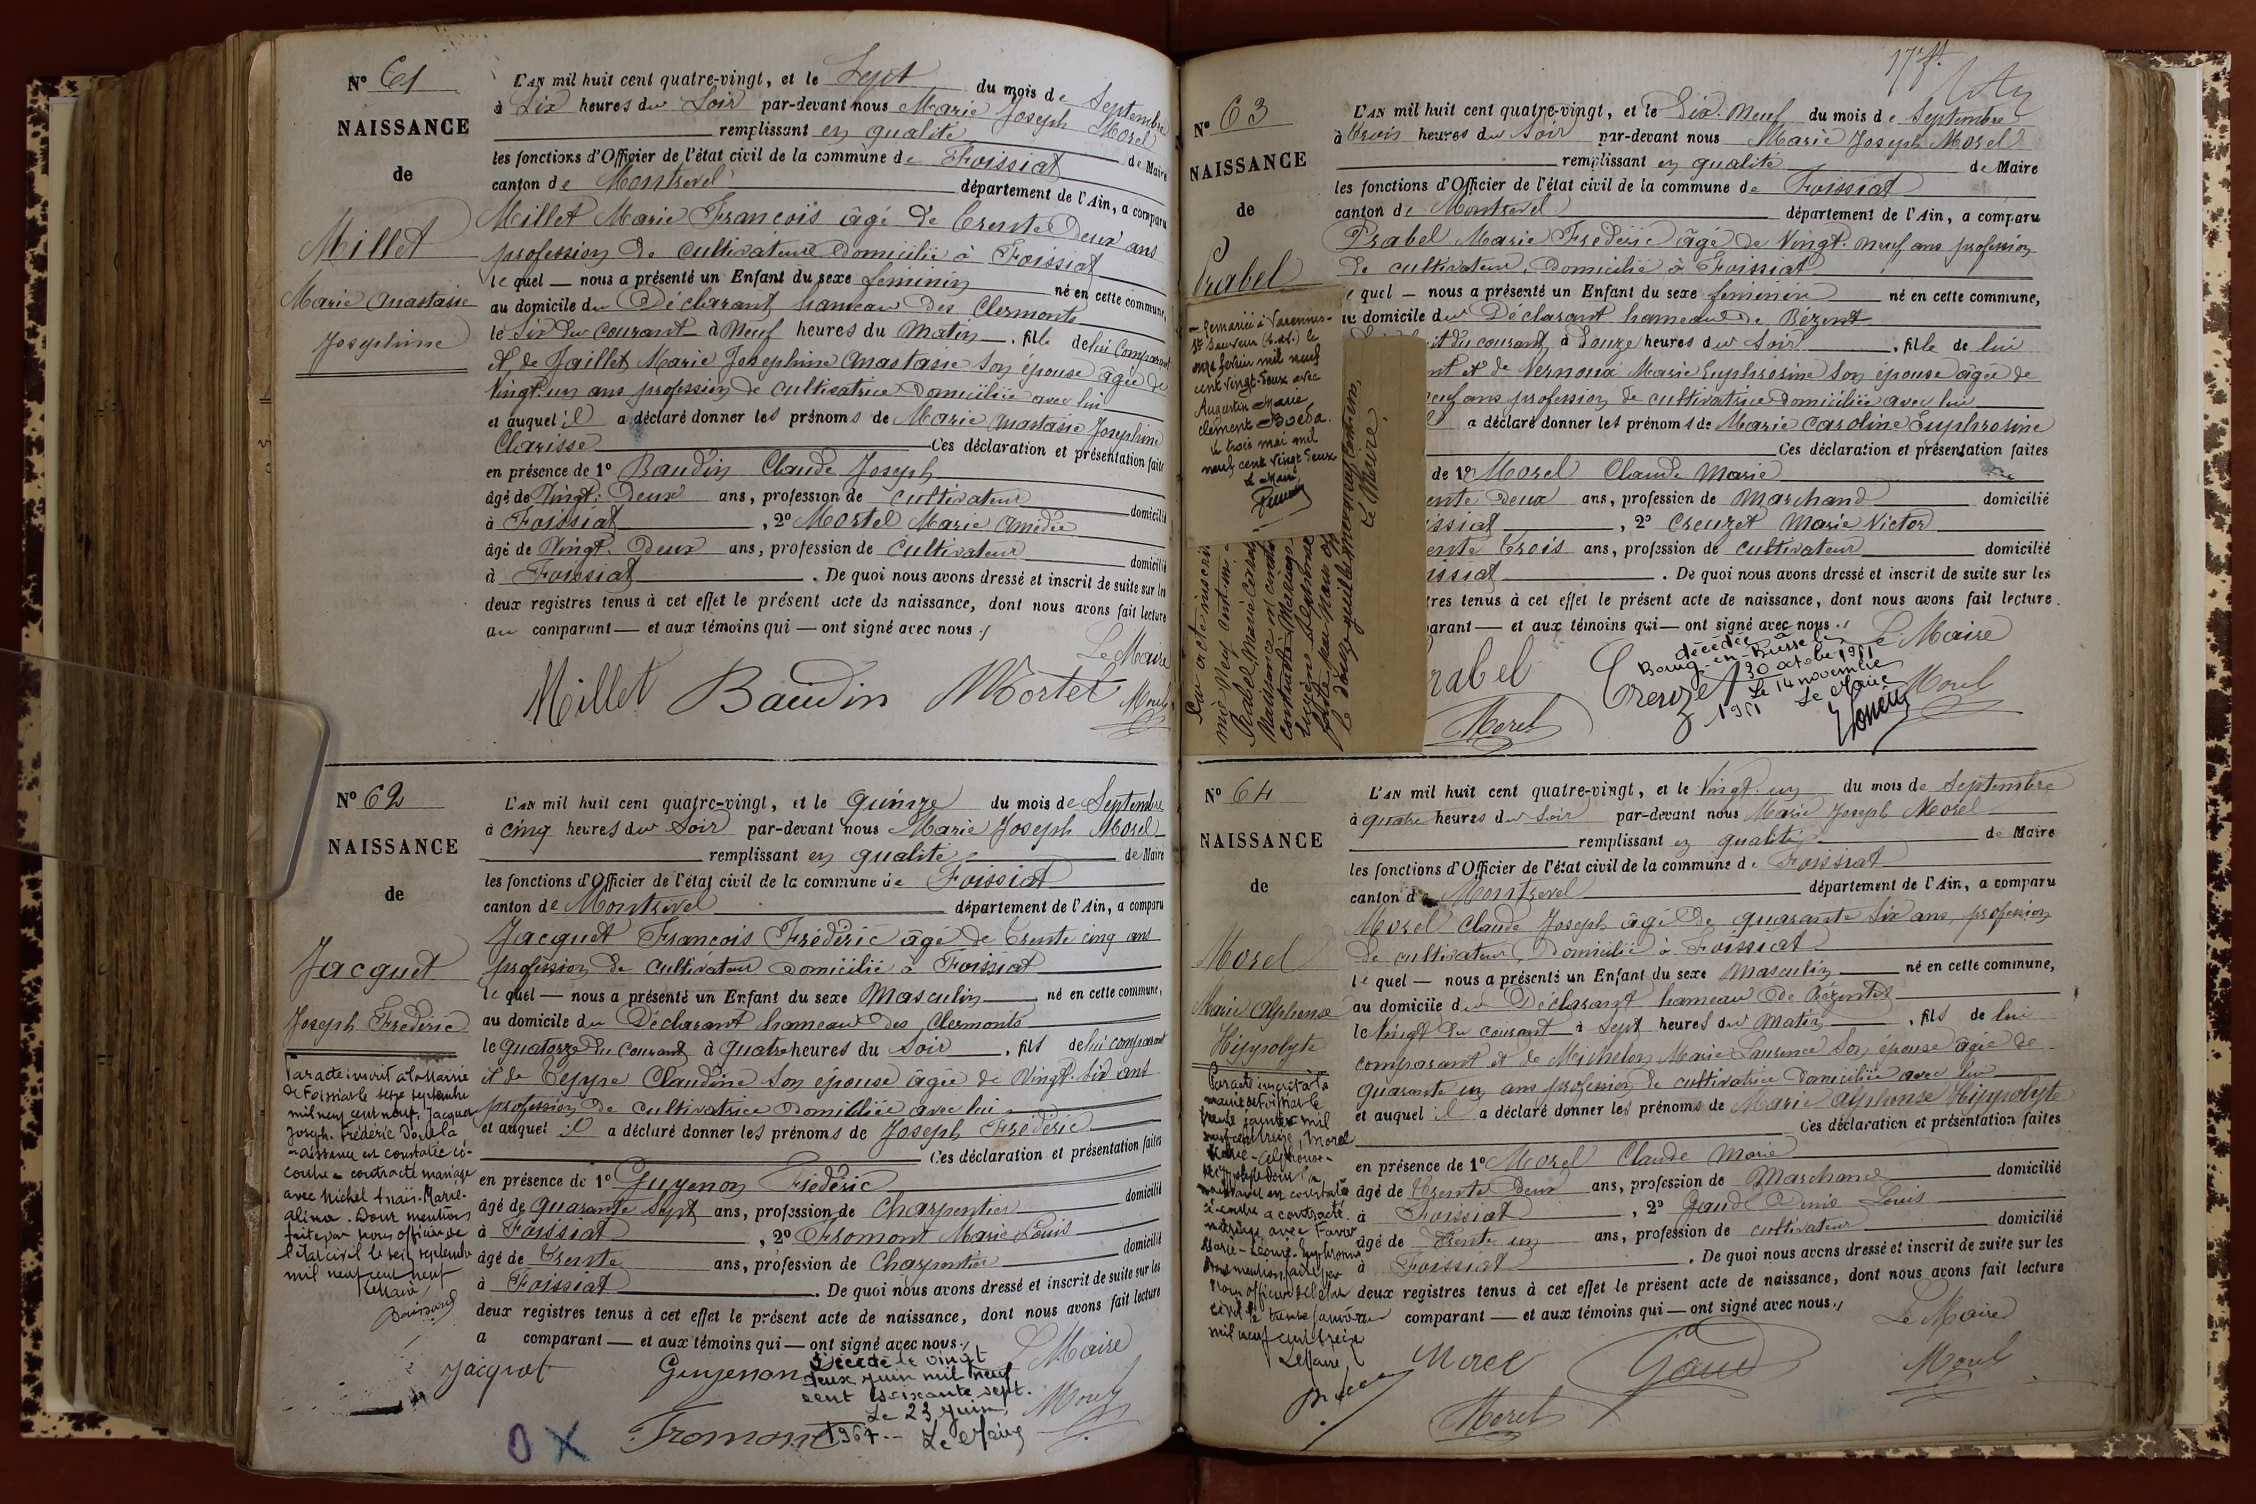 N° 61
NAISSANCE
de
Millet
Marie Anastasie
Josephine
L'AN mil huit cent quatre-vingt, et le Sept du mois de Septembre
à Six heures du Soir par-devant nous Marie Joseph Morel
remplissant en qualité de Maire
les fonctions d'Officier de l'état civil de la commune de Foissiat
canton de Montrevel département de l'Ain, a comparu
Millet Marie François âgé de Trente Deux ans
profession de cultivateur Domicilié à Foissiat
le quel — nous a présenté un Enfant du sexe feminin né en cette commune,
au domicile du Déclarant hameau des Clermonts
le Six du courant à Neuf heures du Matin . fille de lui Comparant
et de Jaillet Marie Josephine Anastasie Son épouse âgée de
Vingt un ans profession de cultivatrice Domiciliée avec lui
et auquel il a déclaré donner les prénoms de Marie Anastasie Josephine
Clarisse Ces déclaration et présentation faites
en présence de 1° Baudin Claude Joseph
âgé de Vingt-Deux ans, profession de cultivateur domicilié
à Foissiat , 2° Mortel Marie Amédée
âgé de Vingt-Deux ans, profession de cultivateur domicilié
à Foissiat . De quoi nous avons dressé et inscrit de suite sur les
deux registres tenus à cet effet le présent acte de naissance, dont nous avons fait lecture
au comparant — et aux témoins qui — ont signé avec nous
Le Maire
Millet Baudin Mortel Morel
N° 62
NAISSANCE
de
Jacquet
Joseph Frédéric
Par acte inscrit à la Mairie
de Foissiat le seize septembre
mil neuf cent neuf, Jacquet
Joseph-Frédéric dont la
naissance est constatée ci-
contre a contracté mariage
avec Michel Anaïs-Marie-
Alina. Dont mention
faite par nous officier de
l'état civil le seize septembre
mil neuf cent neuf
Le Maire,
L'AN mil huit cent quatre-vingt, et le quinze du mois de Septembre
à cinq heures du Soir par-devant nous Marie Joseph Morel
remplissant en qualité de Maire
les fonctions d'Officier de l'état civil de la commune de Foissiat
canton de Montrevel département de l'Ain, a comparu
Jacquet François Frédéric âgé de Trente cinq ans
profession de cultivateur Domicilié à Foissiat
le quel — nous a présenté un Enfant du sexe Masculin né en cette commune,
au domicile du Déclarant hameau des Clermonts
le quatorze du courant à quatre heures du Soir . fils de lui comparant
et de Teppe Claudine Son épouse âgée de Vingt-Six ans
profession de cultivatrice Domiciliée avec lui
et auquel il a déclaré donner les prénoms de Joseph Frédéric
Ces déclaration et présentation faites
en présence de 1° Guyenon Frédéric
âgé de quarante Sept ans, profession de Charpentier domicilié
à Foissiat , 2° Fromont Marie Louis
âgé de Trente ans, profession de Charpentier domicilié
à Foissiat . De quoi nous avons dressé et inscrit de suite sur les
deux registres tenus à cet effet le présent acte de naissance, dont nous avons fait lecture
a comparant — et aux témoins qui — ont signé avec nous
Le Maire
Jacquet Guyenon Morel
Décédé le vingt
deux juin mil neuf
cent soixante sept.
Le 23 juin
1967.- Le Maire
Fromont
O X
174
N° 63
NAISSANCE
de
Prabel
— Remariée à Varennes-
St Sauveur (S.-et-L.) le
onze février mil neuf
cent vingt-deux avec
Augustin Marie
Clément Boeda.
le trois mai mil
neuf cent vingt deux
Le Maire
Le Maire,
L'AN mil huit cent quatre-vingt, et le Dix-Neuf du mois de Septembre
à Trois heures du Soir par-devant nous Marie Joseph Morel
remplissant en qualité de Maire
les fonctions d'Officier de l'état civil de la commune de Foissiat
canton de Montrevel département de l'Ain, a comparu
Prabel Marie Frédéric âgé de Vingt-neuf ans profession
de cultivateur, Domicilié à Foissiat
le quel — nous a présenté un Enfant du sexe feminin né en cette commune,
au domicile du Déclarant hameau de Bézent
du courant, à Douze heures du Soir . fille de lui
et de Vernoux Marie Euphrosine Son épouse âgée de
neuf ans profession de cultivatrice Domiciliée avec lui
a déclaré donner les prénoms de Marie Caroline Euphrosine
Ces déclaration et présentation faites
de 1° Morel Claude Marie
Trente Deux ans, profession de Marchand domicilié
Foissiat , 2° Creuzet Marie Victor
Trente Trois ans, profession de cultivateur domicilié
Foissiat . De quoi nous avons dressé et inscrit de suite sur les
registres tenus à cet effet le présent acte de naissance, dont nous avons fait lecture.
comparant — et aux témoins qui — ont signé avec nous
Le Maire
Prabel Creuzet Morel
décédée à
Bourg-en-Bresse le
30 octobre 1951
Le 14 novembre
1951 Le Maire
Morel
N° 64
NAISSANCE
de
Morel
Marie Alphonse
Hippolyte
Par acte inscrit à la
mairie de Foissiat le
trente janvier mil
neuf cent treize, Morel
Marie-Alphonse-
Hippolyte dont la
naissance est constatée
ci-contre a contracté
mariage avec Favre
Marie-Louise-Euphrosine
Dont mention faite par
nous officier de l'état
civil le trente janvier
mil neuf cent treize
Le Maire,
L'AN mil huit cent quatre-vingt, et le Vingt-un du mois de Septembre
à quatre heures du Soir par-devant nous Marie Joseph Morel
remplissant en qualité de Maire
les fonctions d'Officier de l'état civil de la commune de Foissiat
canton de Montrevel département de l'Ain, a comparu
Morel Claude Joseph âgé de quarante Six ans, profession
de cultivateur, Domicilié à Foissiat
le quel — nous a présenté un Enfant du sexe Masculin né en cette commune,
au domicile du Déclarant hameau de Bézentet
le Vingt du courant à Sept heures du Matin , fils de lui
comparant et de Michelon Marie Laurence Son épouse âgée de
quarante un ans profession de cultivatrice Domiciliée avec lui
et auquel il a déclaré donner les prénoms de Marie Alphonse Hippolyte
Ces déclaration et présentation faites
en présence de 1° Morel Claude Marie
âgé de Trente Deux ans, profession de Marchand domicilié
à Foissiat , 2° Gaud Denis Louis
âgé de Trente un ans, profession de cultivateur domicilié
à Foissiat . De quoi nous avons dressé et inscrit de suite sur les
deux registres tenus à cet effet le présent acte de naissance, dont nous avons fait lecture
au comparant — et aux témoins qui — ont signé avec nous
Le Maire
Morel Gaud Morel
Morel